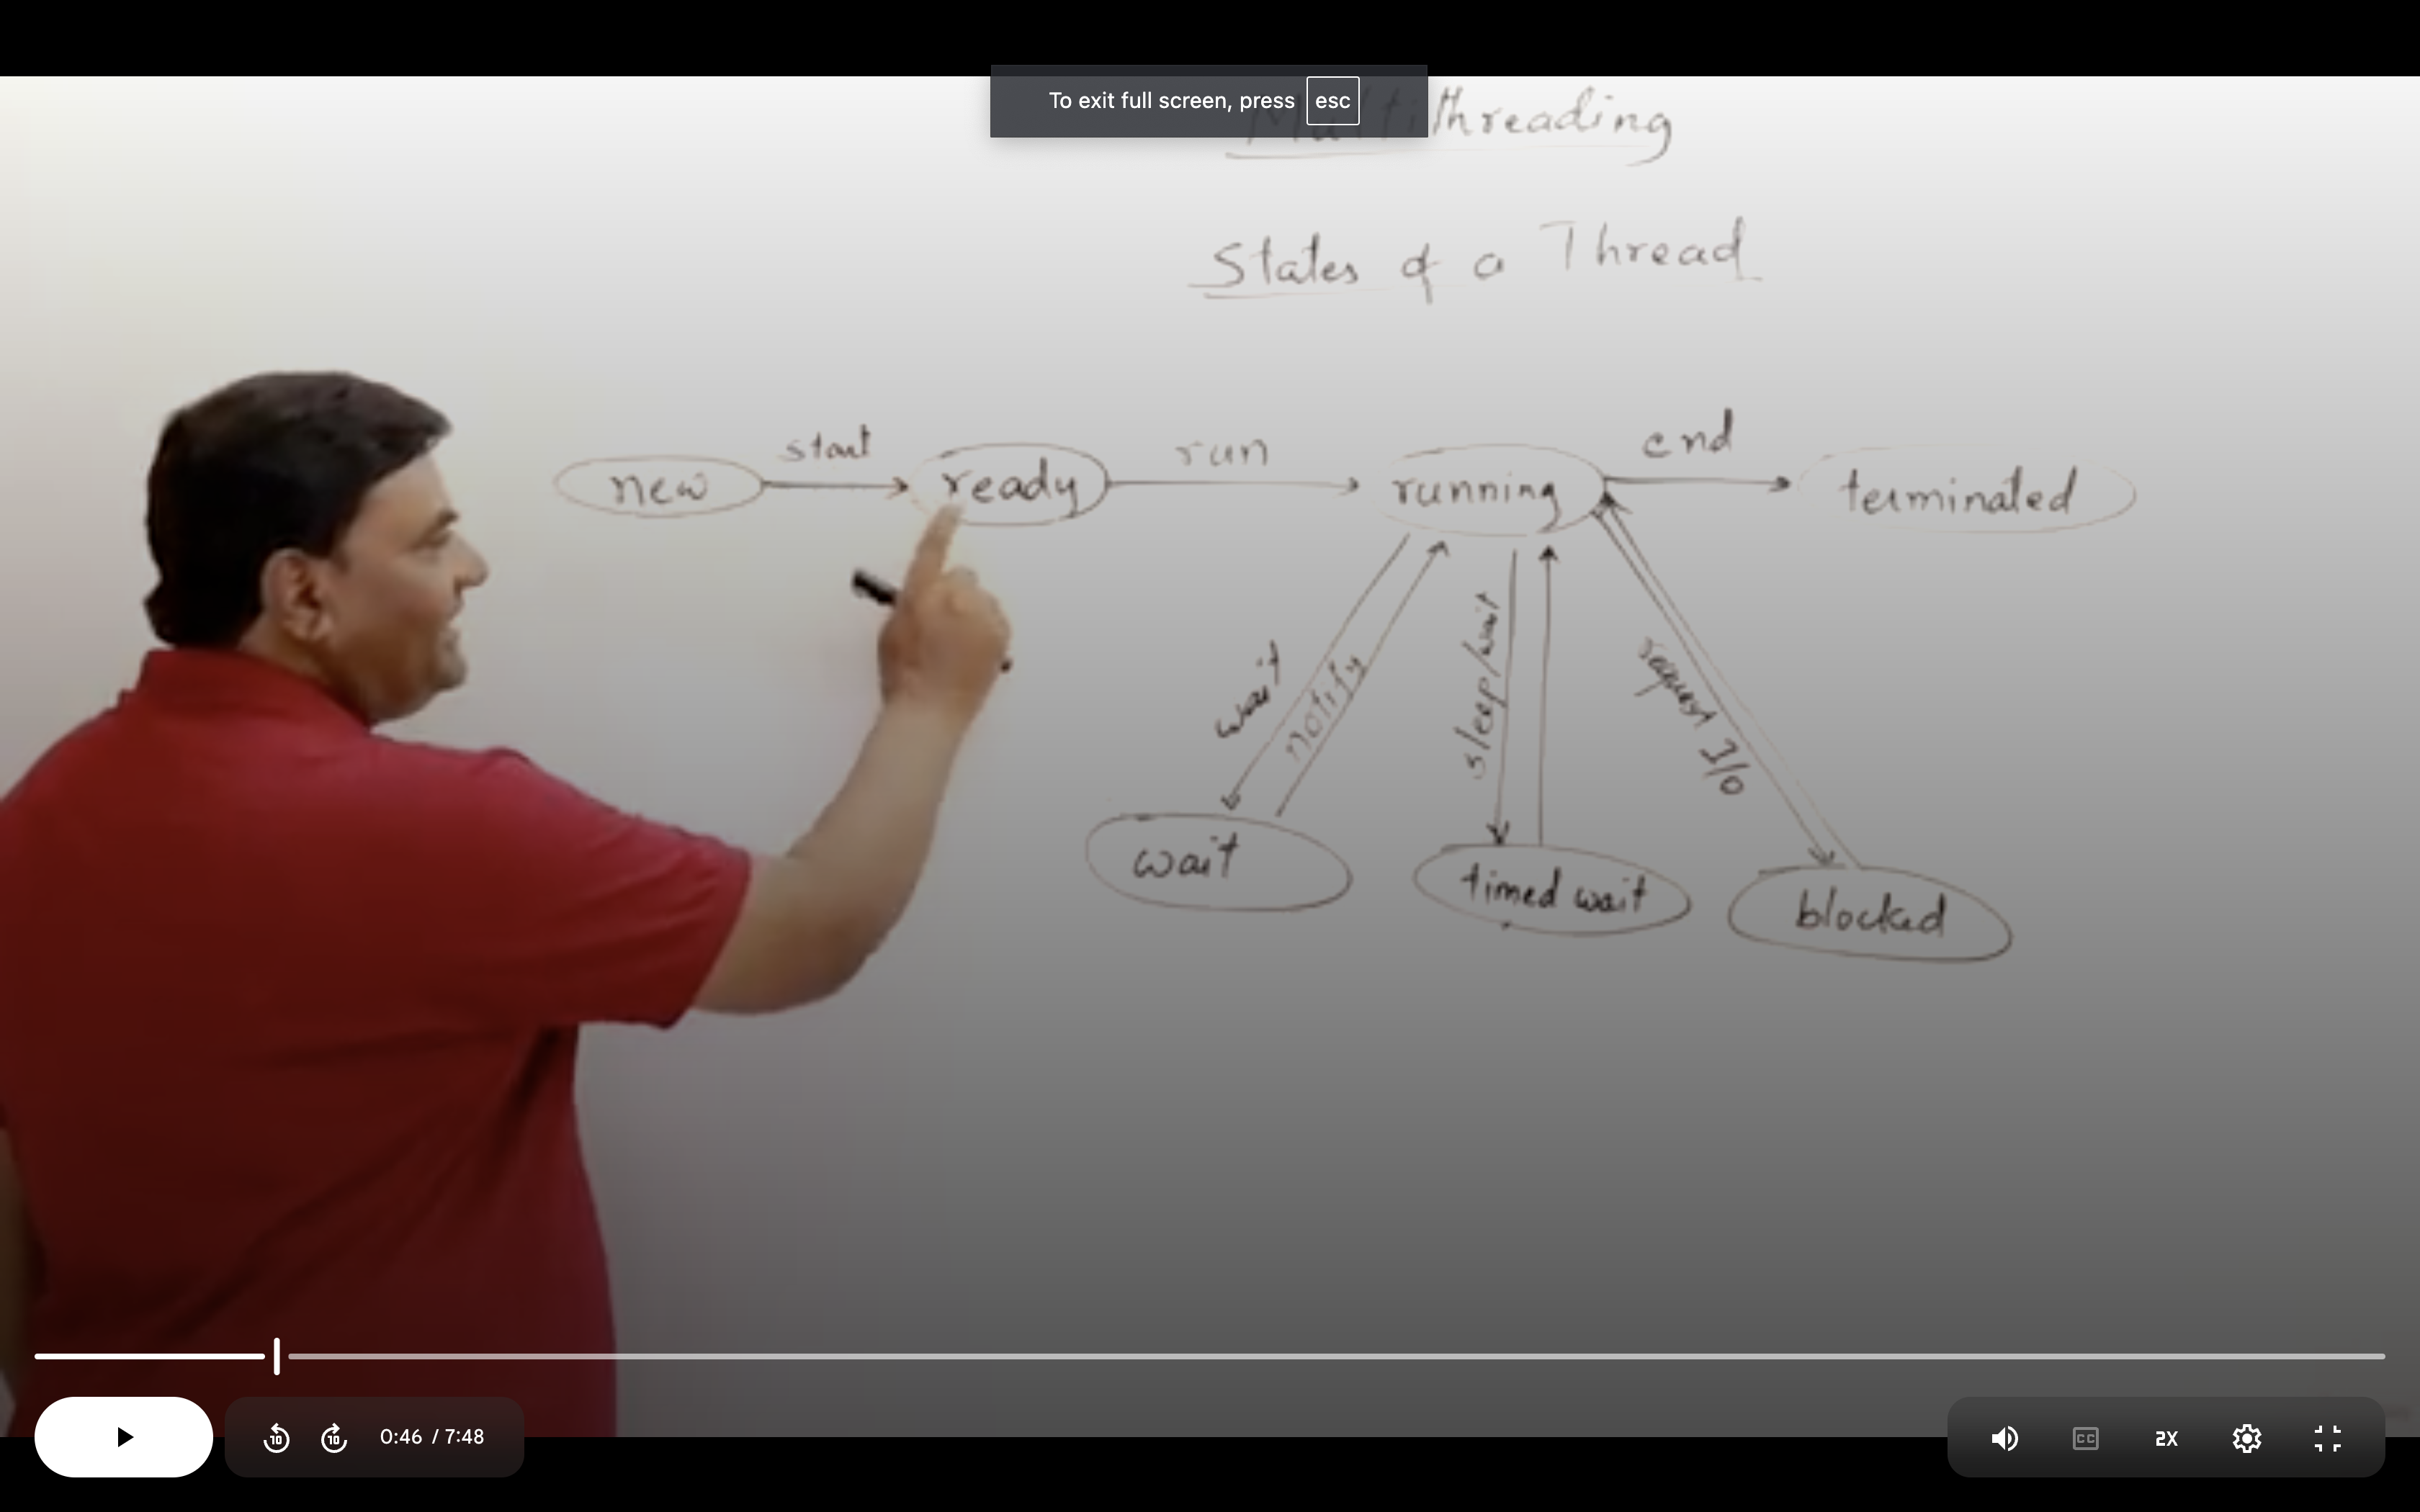 To exit full screen, press esc
Multithreading
States of a Thread
new
start
ready
run
running
end
terminated
wait
notify
sleep/wait
request I/O
wait
timed wait
blocked
10
10
0:46 / 7:48
CC
2X